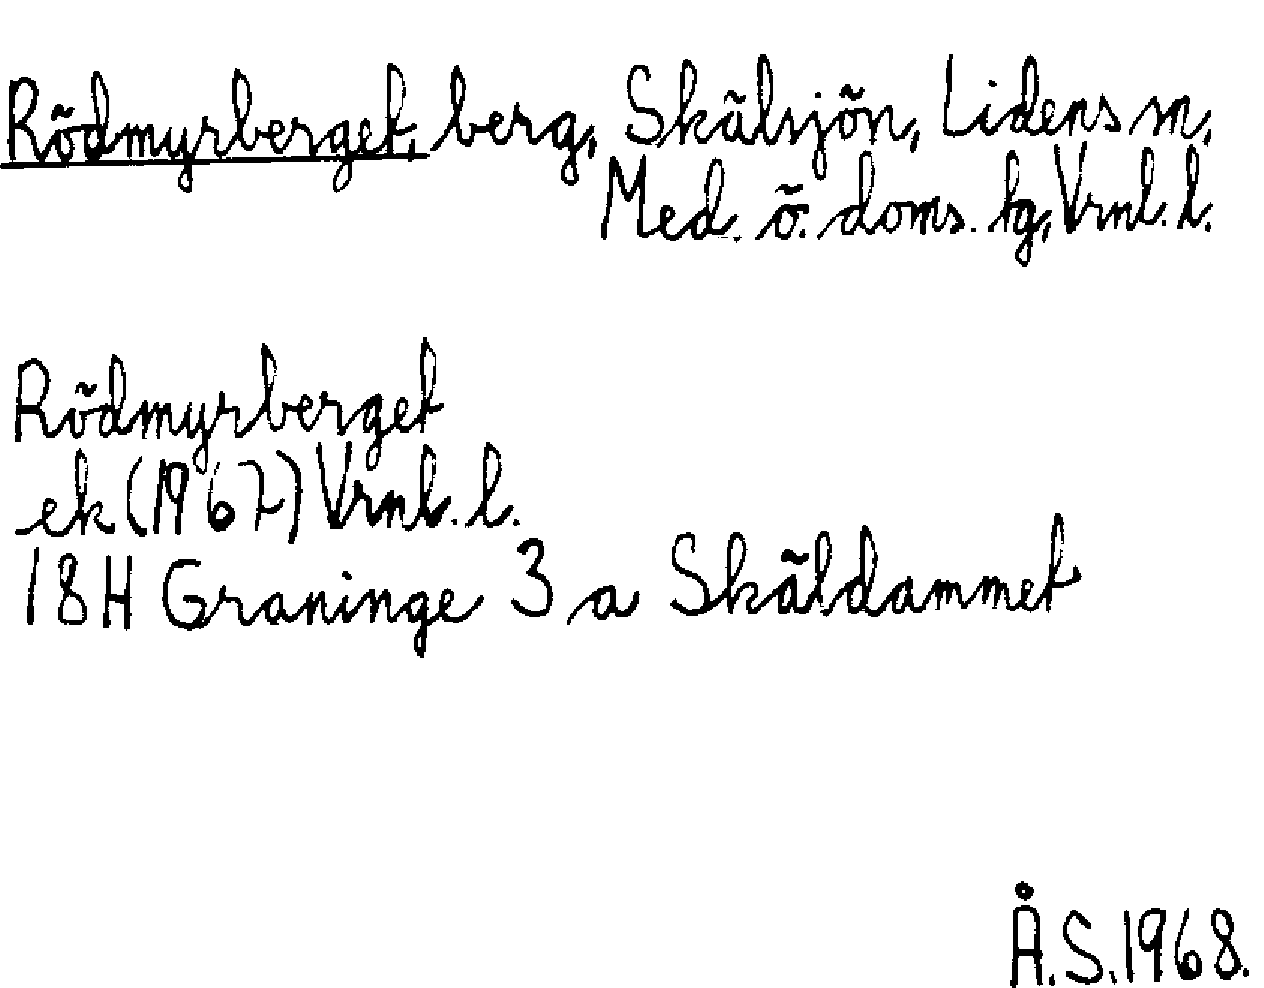 Rödmyrberget, berg, Skälsjön, Lidens sn,
Med. ö. doms. tg, Vrnl. l.
Rödmyrberget
ek (1967) Vrnl. l.
18H Graninge 3 a Skäldammet
Å.S. 1968.